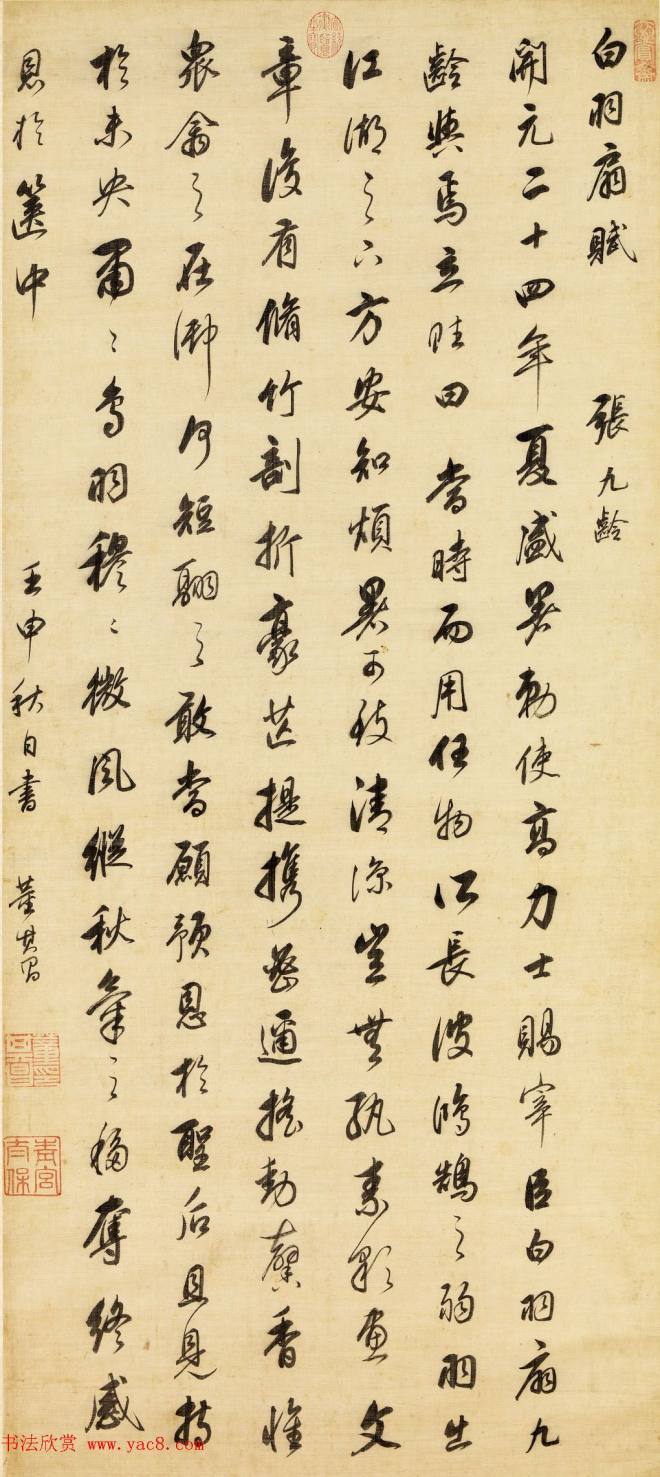 白羽扇賦 張九齡
開元二十四年夏盛暑勅使高力士賜宰臣白羽扇九
齡與焉立賦曰 當時而用任物所長彼鴻鵠之弱羽出
江湖之下方安知煩暑可致清涼豈無紈素彩畫文
章復有脩竹剖析豪芒提攜密邇搖動馨香惟
衆禽之在御何短翮之敢當顧預恩於聖后且見持
於未央肅〻鳥羽穆〻微風縱秋氣之移奪終感
恩於篋中 壬申秋日書 董其昌
青宮太保
书法欣赏 www.yac8.com